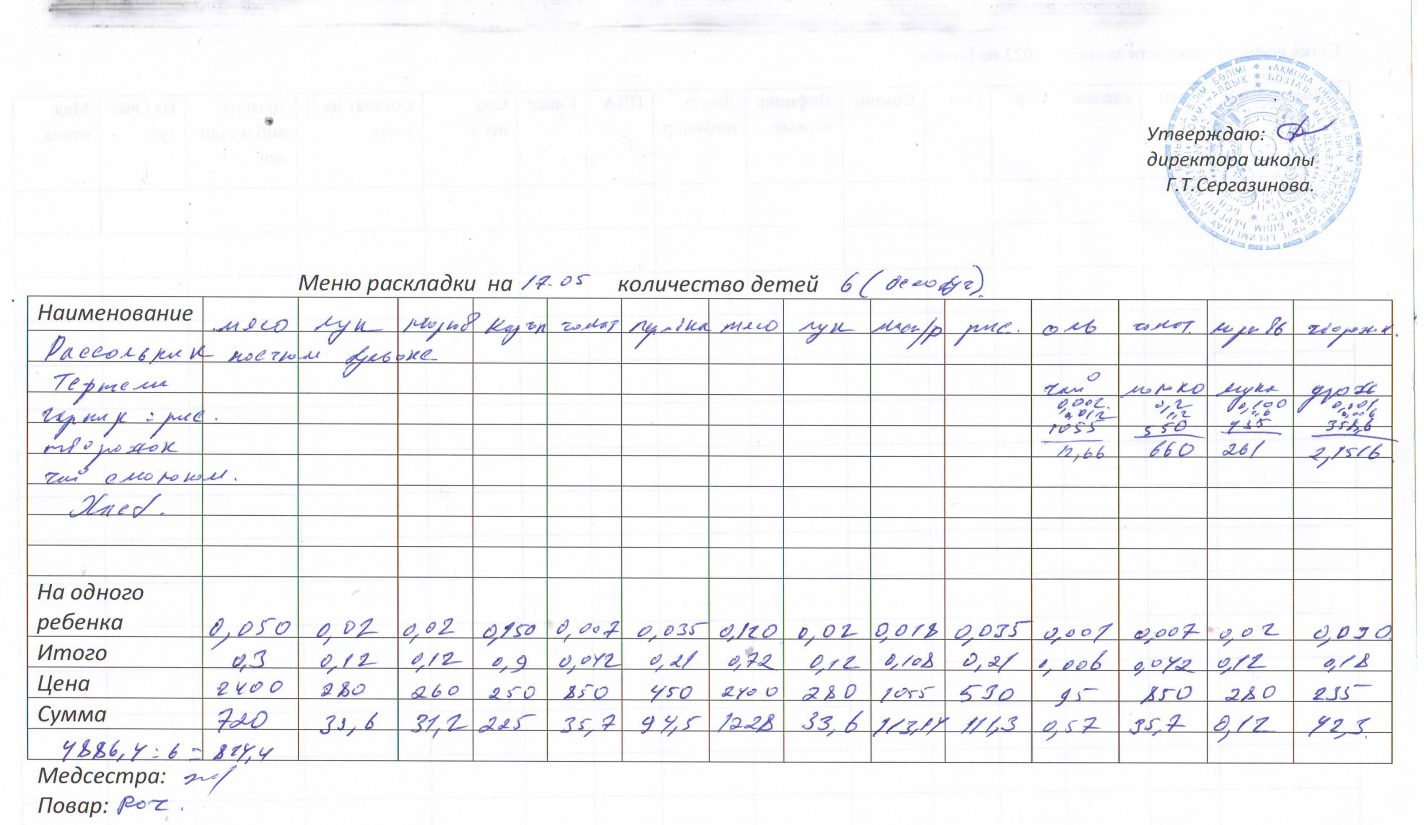 Утверждаю:
директора школы
Г.Т.Сергазинова.
Меню раскладки на 17.05 количество детей 6
Наименование мясо лук карто томат мясо лук рис. соль томат. морковь
Рассольник бульоне
Тефтели чай молоко мука дрож
гарнир: рис. 0,002 0,2 0,100 0,001
0,012 1,2 0,006
творожок 1055 550 435 358,6
12,66 660 261 2,1516
чай с молоком.
Хлеб.
На одного
ребенка 0,050 0,02 0,02 0,150 0,007 0,035 0,120 0,02 0,018 0,035 0,001 0,007 0,02 0,030
Итого 0,3 0,12 0,12 0,9 0,042 0,21 0,72 0,12 0,108 0,21 0,006 0,042 0,12 0,18
Цена 2400 280 260 250 850 450 2400 280 1055 530 95 850 280 235
Сумма 720 33,6 31,2 225 35,7 94,5 1728 33,6 113,94 111,3 0,57 35,7 0,12 42,3
4886,4 : 6 = 814,4
Медсестра:
Повар: